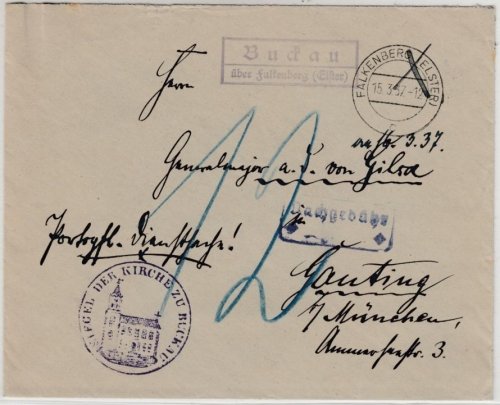 Buckau
über Falkenberg (Elster)
FALKENBERG (ELSTER)
15.3.37-12
Herrn
3.37.
Generalmajor a. D. von Gilsa
Nachgebühr
Portopfl. Dienstsache!
Gauting
b/ München,
Ammerseestr. 3.
12
SIEGEL DER KIRCHE ZU BUCKAU